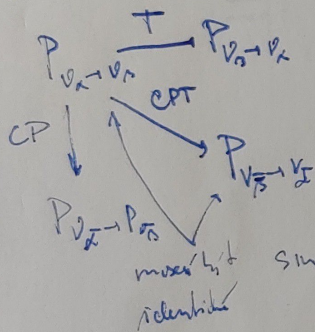 T
P_{ν_α→ν_β} P_{ν_β→ν_α}
CPT
CP
P_{ν_β̄→ν_ᾱ}
P_{ν_ᾱ→P_β̄}
musí být
identické